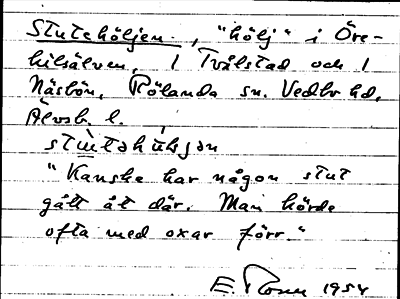 Stutehöljen, "hölj" i Öre-
kilsälven, 1 Tvålstad och 1
Näsbön, Rölanda sn. Vedbo hd,
Älvsb. l.
"Kanske har någon stut
gått åt där. Man körde
ofta med oxar förr."
E. 1954